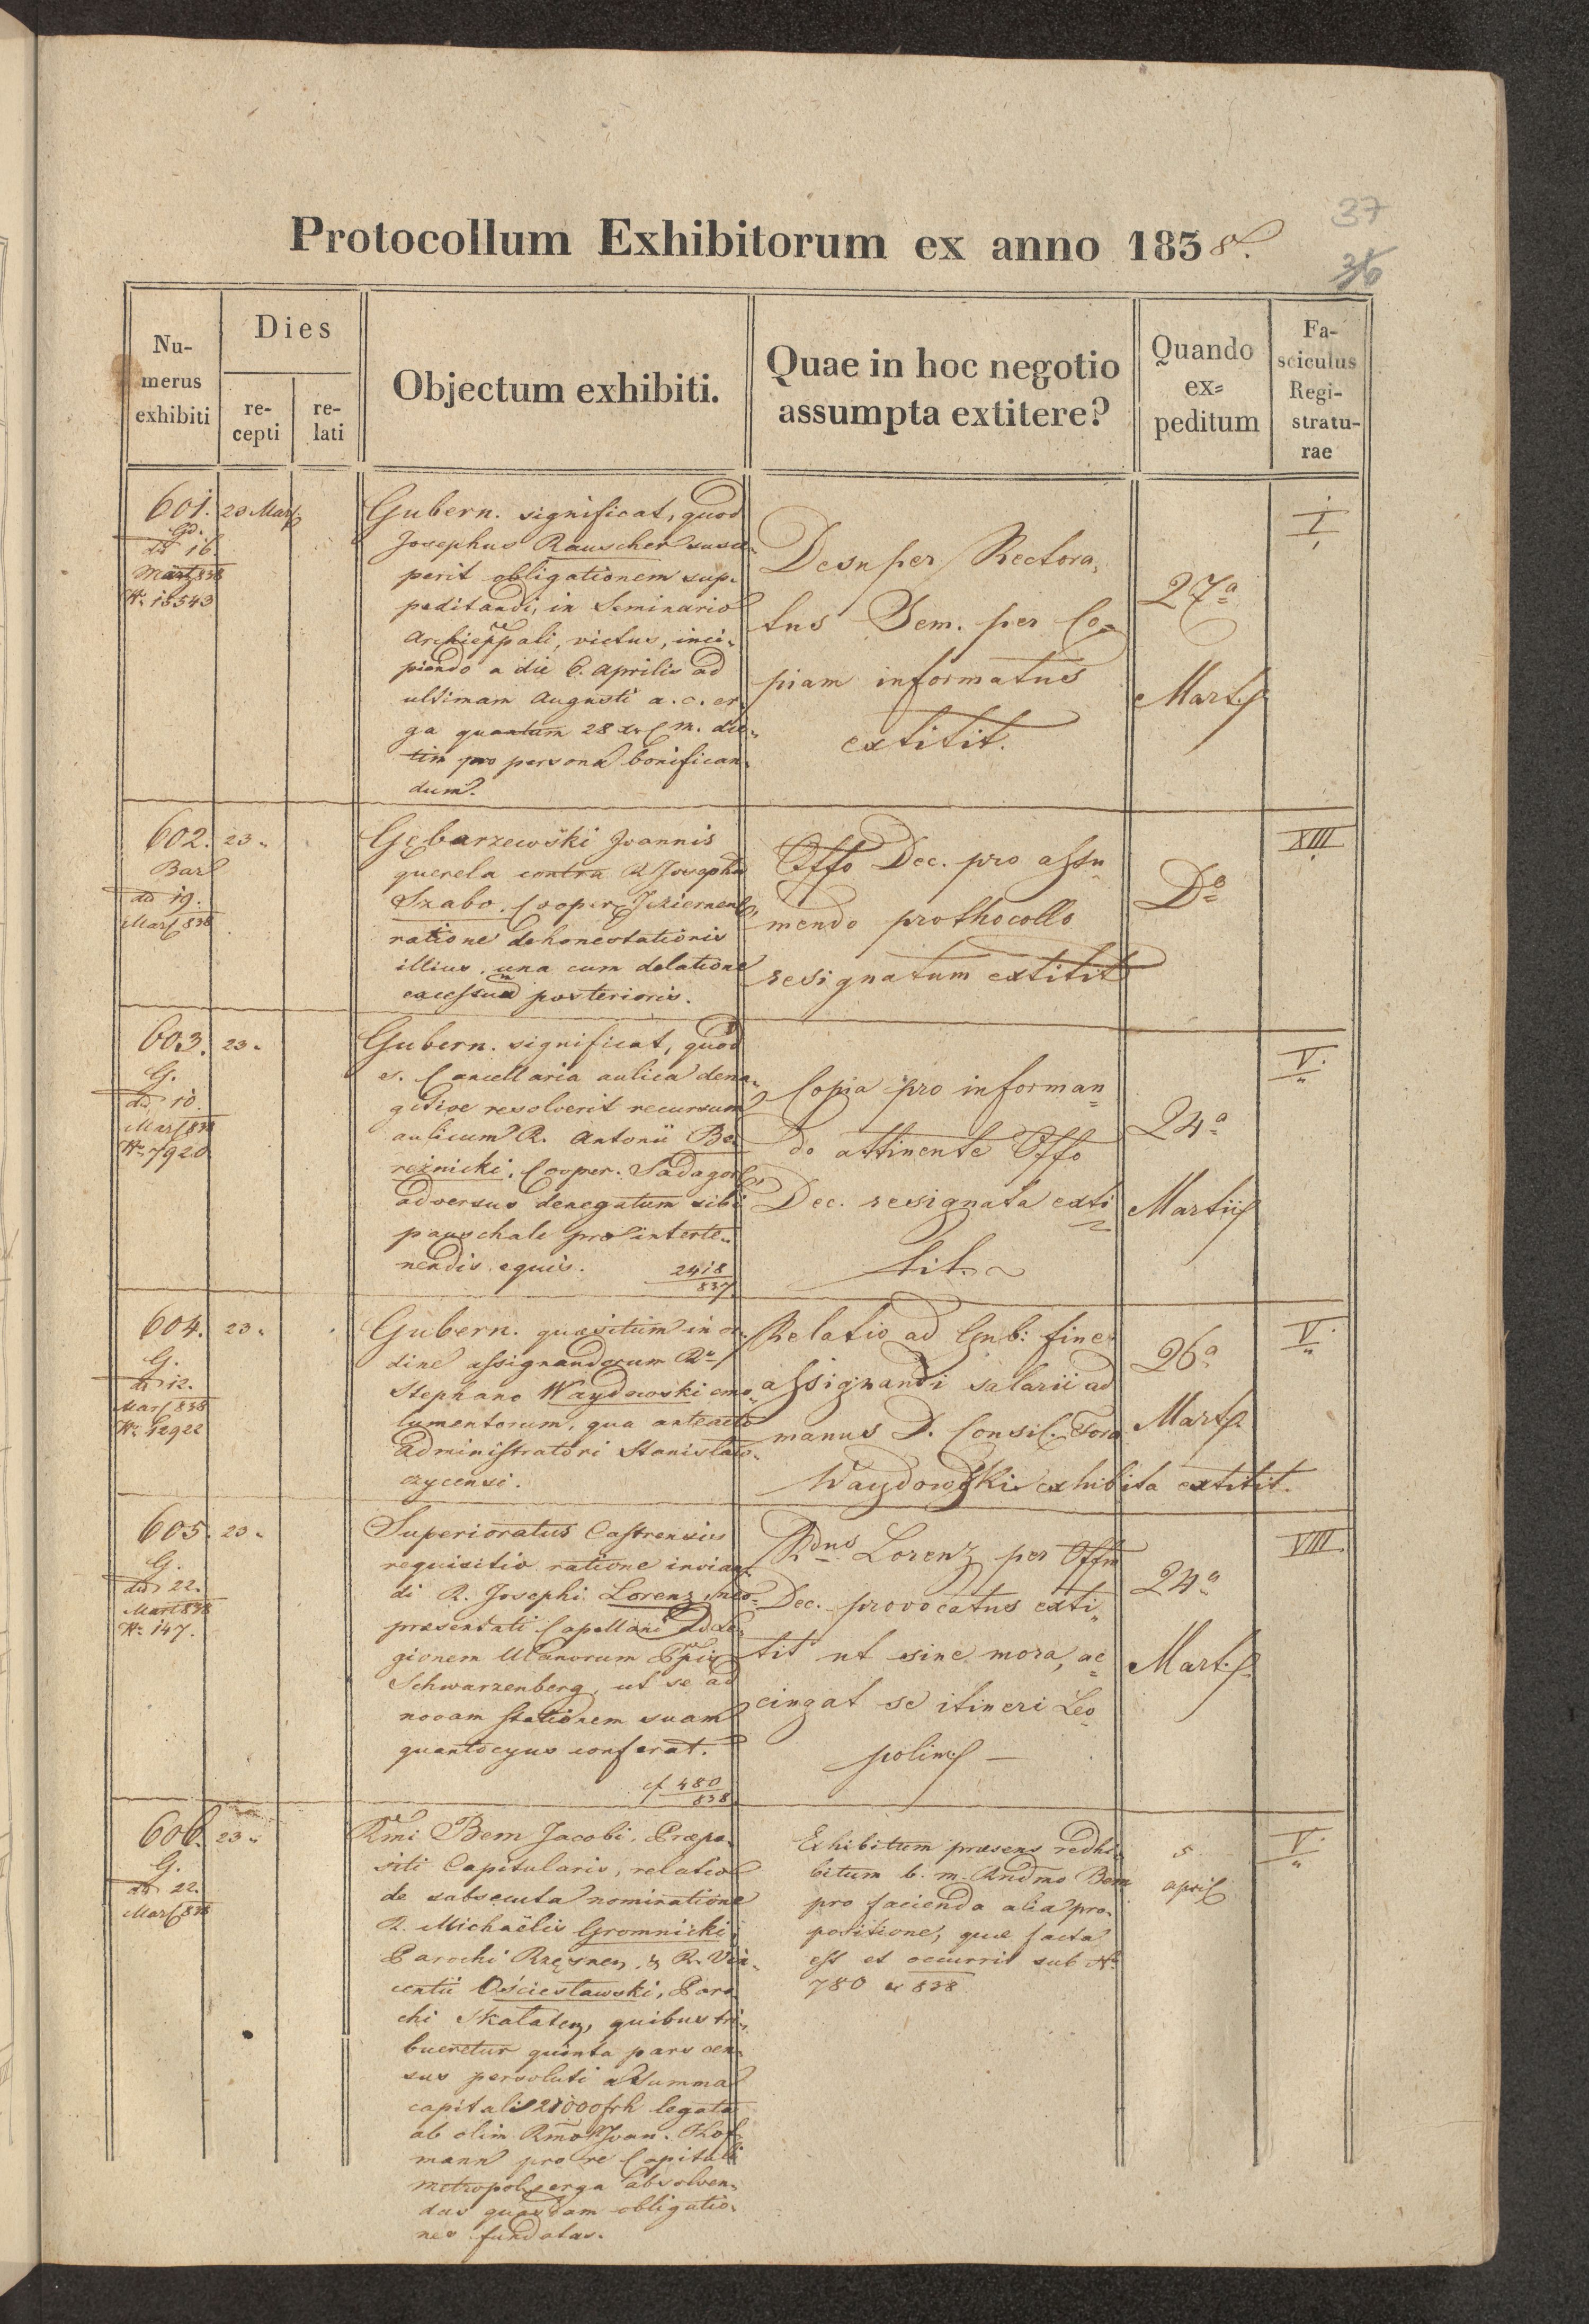 37
36
Protocollum Exhibitorum ex anno 1838.
Nu-
merus
exhibiti
Dies
re-
cepti
re-
lati
Objectum exhibiti.
Quae in hoc negotio
assumpta extitere?
Quando
ex=
peditum
Fa-
sciculus
Regi-
stratu-
rae
601.
Gd.
dd 16.
Mart 838
Nr. 13543
23 Mart
Gubern. significat, quod
Josephus Rauscher susce-
perit obligationem sup-
peditandi, in Seminario
Archieppali, victus, inci-
piendo a die 6. Aprilis ad
ultimam Augusti a. c. er-
ga quantum 28 xr C M. die-
tim pro persona bonifican-
dum.
Desuper Rectora-
tus Sem. per Co=
piam informatus
extitit.
27a
Marty
I
602.
Barl
dd 19.
Mart 838
23 "
Gębarzewski Joannis
querela contra R Joseph
Szabo, Cooper. Jeziernens
ratione dehonestationis
illius, una cum delatione
excessuum posterioris.
Offo Dec. pro assu
mendo prothocollo
resignatum extitit
Do
XIII
603.
G.
dd. 10.
Mart 838
Nr. 7920
23 "
Gubern. significat, quod
e. Cancellaria aulica dene-
gative resolverit recursum
aulicum R. Antonii Be-
reźnicki, Cooper. Sadagor
adversus denegatum sibi
pauschale pro interte-
nendis equis.
2418
837
Copia pro informan
do attinente Offo
Dec. resignata exti
tit.
24a
Martii
V.
604.
G.
dd 12.
Mart 838
Nr. 12922
23 "
Gubern. quaesitum in or-
dine assignandorum Ro
Stephano Waydowski emo-
lumentorum, qua anteacto
administratori Stanislaw-
czycensi.
Relatio ad Gub: fine
assignandi salarii ad
manus D. Consil. Fora
Waydowski exhibita extitit.
26a
Marty
V.
605.
G.
dd. 22.
Mart 838
Nr. 147.
23 "
Superioratus Castrensis
requisitio ratione invian-
di R. Josephi Lorenz, neo-
praesentati Capellani ad Le-
gionem Ulanorum Ppis
Schwarzenberg, ut se ad
novam stationem suam
quantocyus conferat.
cf 480
838
Rdus Lorenz per Offm
Dec. provocatus exti
tit ut sine mora, ac
cingat se itineri Leo
polim
24a
Marty
VIII.
606.
G.
dd 22.
Mart 838
23 "
Rmi Bem Jacobi, Praepo-
siti Capitularis, relatio
de subsecuta nominatione
R. Michaëlis Gromnicki,
Parochi Rzęsnen, & R. Vin-
centii Ościesławski, Paro-
chi Skalaten, quibus tri-
bueretur quinta pars cen-
sus persoluti a summa
capitalis 21000 frh legata
ab olim Rmo Joan. Hof-
mann pro re Capituli
Metropol, erga absolven-
das quasdam obligatio-
nes fundatas.
Exhibitum praesens redhi-
bitum b. m. Rndmo Bem
pro facienda alia pro-
positione, quae facta
est et occurrit sub Nr
780 ex 838
5
April
V.